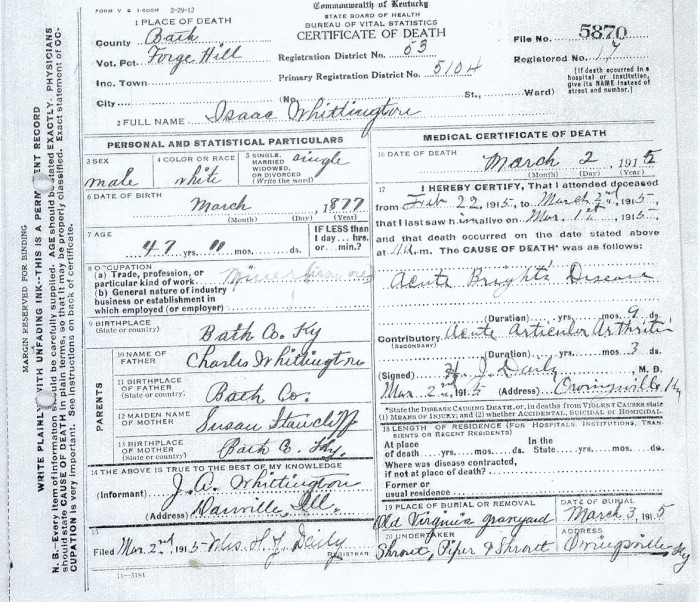 FORM V S 1-500M 2-29-12
Commonwealth of Kentucky
STATE BOARD OF HEALTH
BUREAU OF VITAL STATISTICS
CERTIFICATE OF DEATH
1 PLACE OF DEATH
County Bath
Vot. Pct. Forge Hill
Inc. Town
City (No. St., Ward)
Registration District No. 53
Primary Registration District No. 5104
File No. 5870
Registered No. 17
(If death occurred in a hospital or institution, give its NAME instead of street and number.)
2 FULL NAME Isaac Whittington
PERSONAL AND STATISTICAL PARTICULARS
3 SEX male
4 COLOR OR RACE white
5 SINGLE, MARRIED WIDOWED, OR DIVORCED (Write the word) single
6 DATE OF BIRTH March , 1877
(Month) (Day) (Year)
7 AGE 47 yrs. 00 mos. ds.
IF LESS than 1 day... hrs. or... min.?
8 OCCUPATION
(a) Trade, profession, or particular kind of work
(b) General nature of industry business or establishment in which employed (or employer)
9 BIRTHPLACE (State or country) Bath Co. Ky
PARENTS
10 NAME OF FATHER Charles Whittington
11 BIRTHPLACE OF FATHER (State or country) Bath Co.
12 MAIDEN NAME OF MOTHER Susan
13 BIRTHPLACE OF MOTHER (State or country) Bath Co Ky.
14 THE ABOVE IS TRUE TO THE BEST OF MY KNOWLEDGE
(Informant) J. A. Whittington
(Address) Danville, Ill.
15
Filed Mar. 2nd, 1915 Mrs. H. J. Daily
REGISTRAR
11-3184
MEDICAL CERTIFICATE OF DEATH
16 DATE OF DEATH March 2, 1915
(Month) (Day) (Year)
17 I HEREBY CERTIFY, That I attended deceased
from Feb 22, 1915, to March 2nd, 1915,
that I last saw him alive on Mar. 1st, 1915,
and that death occurred on the date stated above
at m. The CAUSE OF DEATH* was as follows:
Acute Bright's Disease
(Duration) yrs. mos. 9 ds.
Contributory (SECONDARY) Acute Articular Arthritis
(Duration) yrs. mos. 3 ds.
(Signed) H. J. Daily, M. D.
Mar. 2nd, 1915 (Address) Owingsville Ky
*State the DISEASE CAUSING DEATH, or, in deaths from VIOLENT CAUSES state (1) MEANS OF INJURY; and (2) whether ACCIDENTAL, SUICIDAL or HOMICIDAL.
18 LENGTH OF RESIDENCE (FOR HOSPITALS, INSTITUTIONS, TRANSIENTS OR RECENT RESIDENTS)
At place of death yrs. mos. ds. In the State yrs. mos. ds.
Where was disease contracted, if not at place of death?
Former or usual residence
19 PLACE OF BURIAL OR REMOVAL Old Virginia graveyard
DATE OF BURIAL March 3, 1915
20 UNDERTAKER Shrout, Piper & Shrout
ADDRESS Owingsville Ky
MARGIN RESERVED FOR BINDING
WRITE PLAINLY WITH UNFADING INK--THIS IS A PERM ENT RECORD
N. B.--Every item of information should be carefully supplied. AGE should be stated EXACTLY. PHYSICIANS
should state CAUSE OF DEATH in plain terms, so that it may be properly classified. Exact statement of OC-
CUPATION is very important. See instructions on back of certificate.